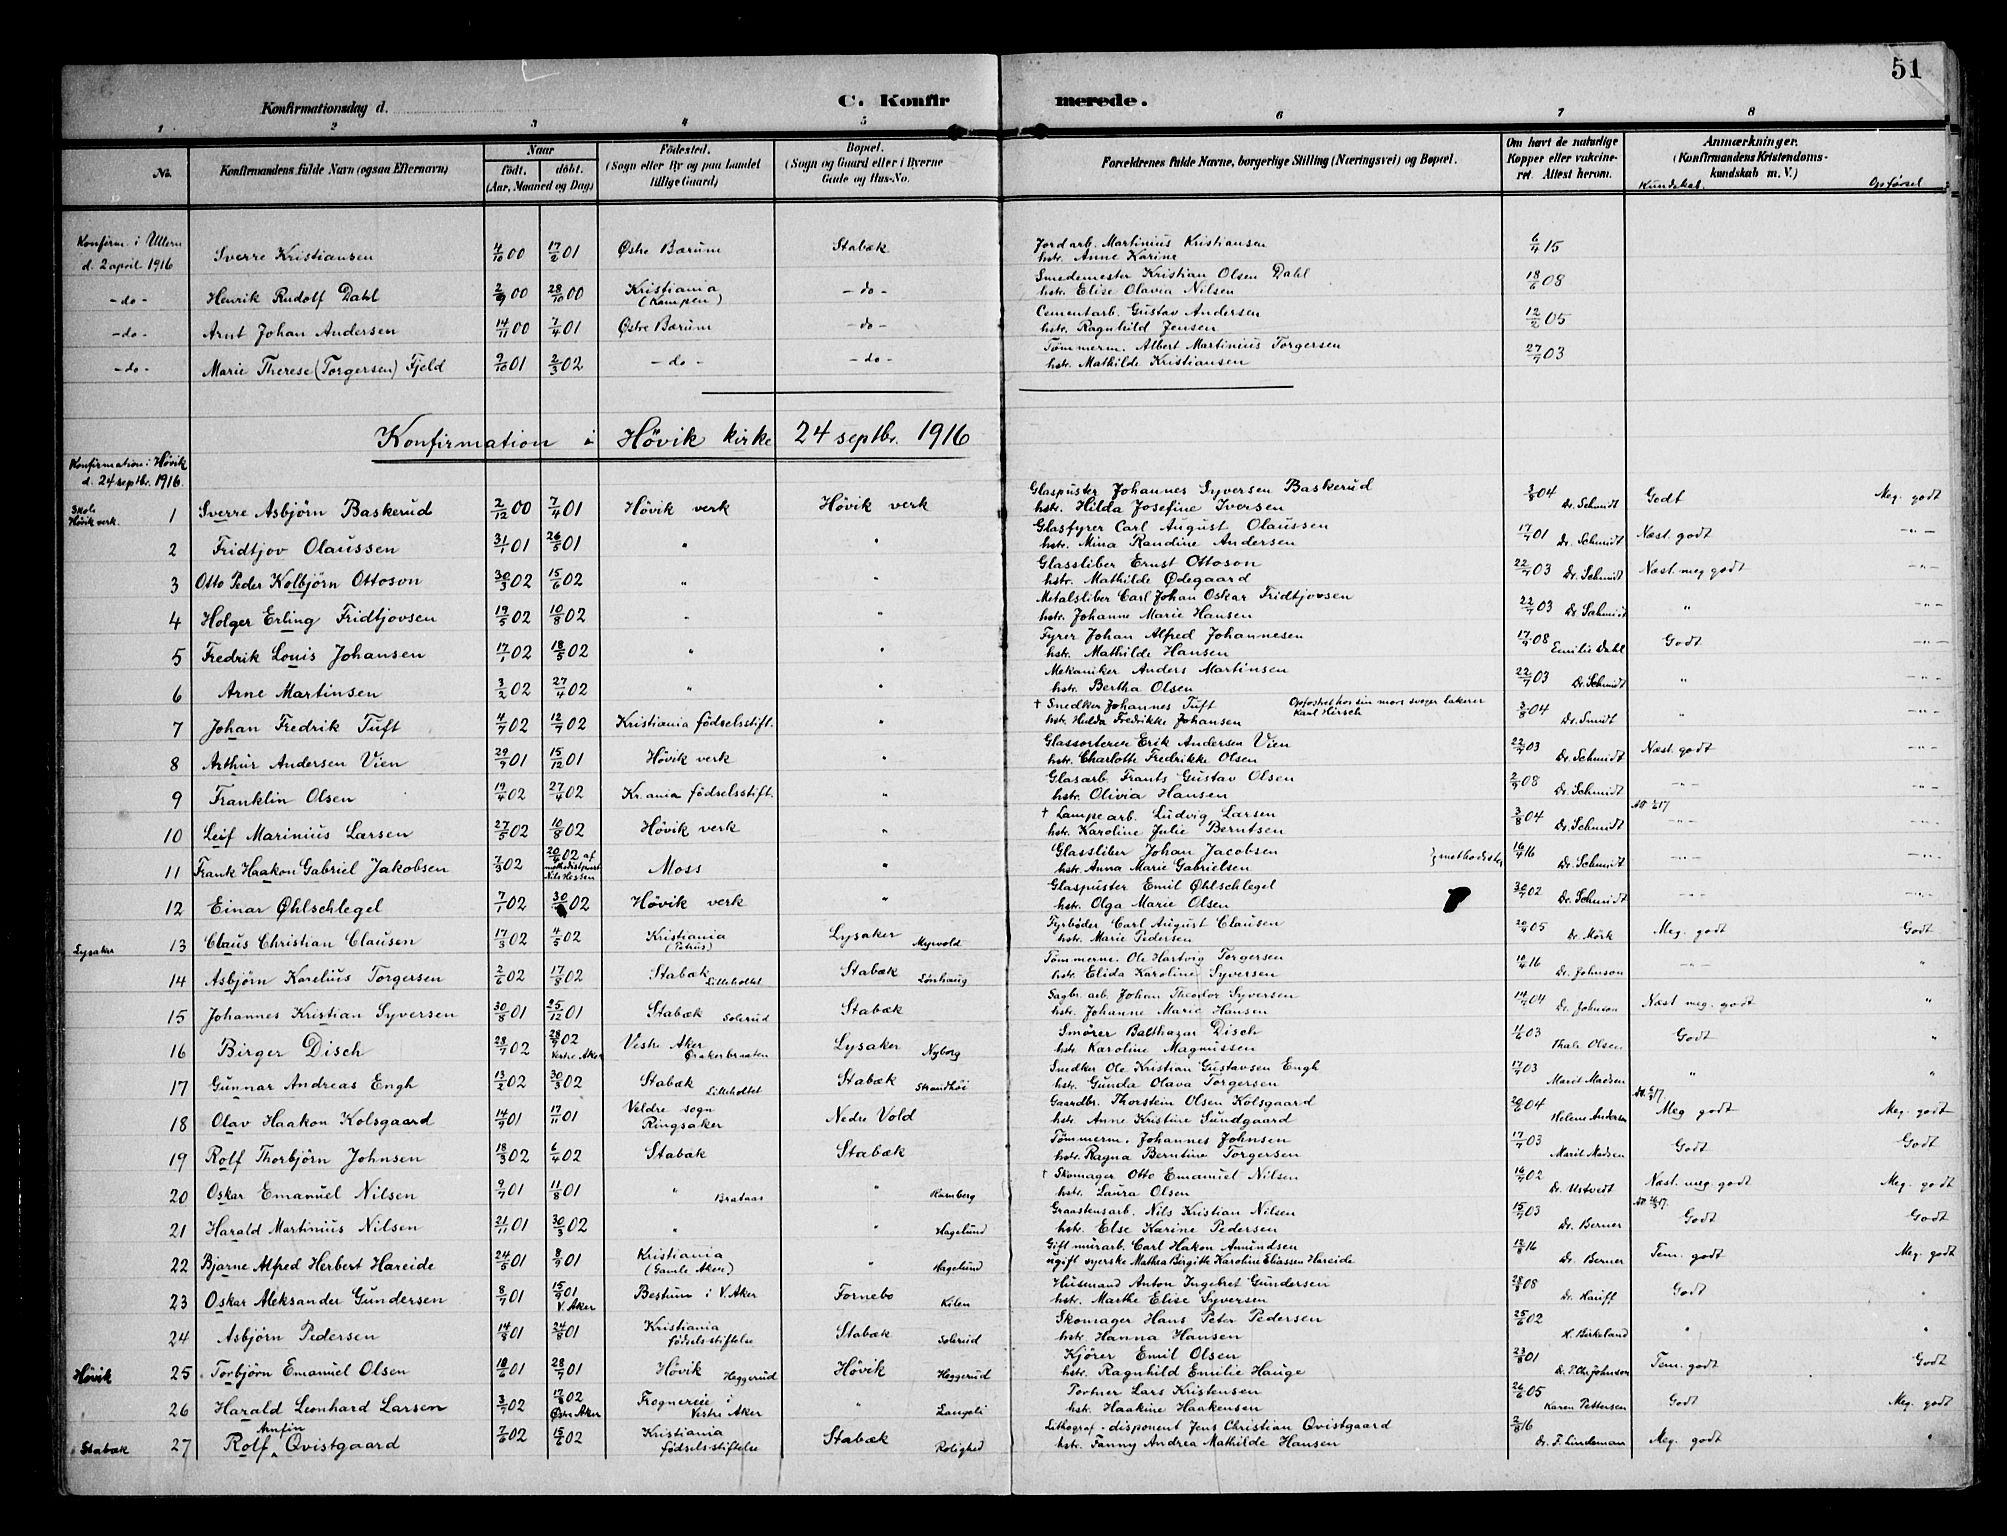 51
Konfirmationsdag d. C. Konfirmerede.
1 2 3 4 5 6 7 8
No. Konfirmandens fulde Navn (ogsaa Efternavn) Naar født. døbt. (Aar, Maaned og Dag) Fødested. (Sogn eller By og paa Landet tillige Gaard) Bopæl. (Sogn og Gaard eller i Byerne Gade og Hus-No. Forældrenes fulde Navne, borgerlige Stilling (Næringsvei) og Bopæl. Om havt de naturlige Kopper eller vakcineret. Attest herom. Anmærkninger. (Konfirmandens Kristendomskundskab m. V.) Kundskab. Opførsel
Konfirm. i Ullern d. 2 april 1916 Sverre Kristiansen 4/10 00 17/2 01 Østre Bærum Stabæk Jordarb. Martinius Kristiansen hstr. Anne Karine 6/4 15
-do- Henrik Rudolf Dahl 2/9 00 28/10 00 Kristiania (Kampen) -do- Smedemester Kristian Olsen Dahl hstr. Elise Olavia Nilsen 18/6 08
-do- Arnt Johan Andersen 14/11 00 7/4 01 Østre Bærum -do- Cementarb. Gustav Andersen hstr. Ragnhild Jensen 12/2 05
-do- Marie Therese (Torgersen) Fjeld 9/10 01 2/3 02 -do- -do- Tømmerm. Albert Martinius Torgersen hstr. Mathilde Kristiansen 27/7 03
Konfirmation i Høvik kirke 24 septbr. 1916
Konfirmation i Høvik d. 24 septbr. 1916.
Skole Høvik verk. 1 Sverre Asbjörn Baskerud 2/12 00 7/4 01 Høvik verk Høvik verk Glaspuster Johannes Syversen Baskerud hstr. Hilda Josefine Iversen 3/8 04 Dr. Schmidt Godt Meg. godt
2 Fridtjov Olaussen 31/1 01 26/5 01 " " Glasfyrer Carl August Olaussen hstr. Mina Randine Andersen 17/9 01 Dr. Schmidt Næst. godt -"-
3 Otto Peder Kolbjörn Ottoson 30/3 02 15/6 02 " " Glassliber Ernst Ottoson hstr. Mathilde Ødegaard 22/7 03 Dr. Schmidt Næst. meg godt -"-
4 Holger Erling Fridtjovsen 19/5 02 10/8 02 " " Metalsliber Carl Johan Oskar Fridtjovsen hstr. Johanne Marie Hansen 22/7 03 Dr. Schmidt " -"-
5 Fredrik Louis Johansen 17/1 02 18/5 02 " " Fyrer Johan Alfred Johannesen hstr. Mathilde Hansen 17/9 08 Emilie Dahl Godt -"-
6 Arne Martinsen 3/2 02 27/4 02 " " Mekaniker Anders Martinsen hstr. Bertha Olsen 22/7 03 Dr. Schmidt " -"-
7 Johan Fredrik Tuft 4/7 02 12/7 02 Kristiania fødselsstift. " † Snedker Johannes Tuft hstr. Hilda Fredrikke Johansen Opfostret hos sin mors svoger lakerer Karl Hirsch 3/8 04 Dr. Smidt " -"-
8 Arthur Andersen Vien 29/9 01 15/12 01 Høvik verk " Glassorterer Erik Andersen Vien hstr. Charlotte Fredrikke Olsen 22/7 03 Dr. Schmidt Næst. godt -"-
9 Franklin Olsen 19/4 02 27/4 02 Kr.ania fødselsstift. " Glasarb. Frants Gustav Olsen hstr. Olivia Hansen 2/9 08 Dr. Schmidt -"- -"-
10 Leif Marinius Larsen 27/5 02 10/8 02 Høvik verk " † Lampearb. Ludvig Larsen hstr. Karoline Julie Berntsen 3/8 04 Dr. Schmidt -"- -"-
11 Frank Haakon Gabriel Jakobsen 7/3 02 20/6 02 af Moss " Glassliber Johan Jacobsen hstr. Anna Marie Gabrielsen } methodister 16/4 16 Dr. Schmidt -"- -"-
12 Einar Øhlschlegel 7/1 02 30/ 02 Høvik verk " Glaspuster Emil Øhlschlegel hstr. Olga Marie Olsen 30/7 02 Dr. Schmidt -"- -"-
Lysaker 13 Claus Christian Clausen 17/3 02 4/5 02 Kristiania (Petrus) Lysaker Myrvold Fyrbøder Carl August Clausen hstr. Marie Pedersen 20/9 05 Dr. Mörk Meg. godt Godt
14 Asbjörn Karelius Torgersen 2/6 02 17/8 02 Stabæk Lilleholtet Stabæk Lønhaug Tømmerm. Ole Hartvig Torgersen hstr. Elida Karoline Syversen 10/4 16 Dr. Johnson -"- "
15 Johannes Kristian Syversen 30/8 01 25/12 01 Stabæk Solerud Stabæk Sagbr. arb. Johan Theodor Syversen hstr. Johanne Marie Hansen 14/9 04 Dr. Johnson Næst meg. godt "
16 Birger Disch 28/7 02 28/9 02 Vestre Aker Vestre Aker Lysaker Nyborg Smører Balthazar Disch hstr. Karoline Magnussen 4/6 03 Thale Olsen Godt "
17 Gunnar Andreas Engh 13/2 02 30/3 02 Stabæk Lilleholtet Stabæk Strandhöi Snedker Ole Kristian Gustavsen Engh hstr. Gunda Olava Torgersen 17/7 03 Marit Madsen " "
18 Olav Haakon Kolsgaard 14/9 01 17/11 01 Veldre sogn Ringsaker Nedre Vold Gaardbr. Thorstein Olsen Kolsgaard hstr. Anne Kristine Sundgaard 20/6 04 Helene Andersen Meg godt Meg. godt
19 Rolf Thorbjörn Johnsen 18/3 02 6/4 02 Stabæk Stabæk Tømmerm. Johannes Johnsen hstr. Ragna Berntine Torgersen 17/7 03 Marit Madsen Godt Godt
20 Oskar Emanuel Nilsen 9/7 01 11/8 01 " Brataas " Ramberg † Skomager Otto Emanuel Nilsen hstr. Laura Olsen 16/7 02 Dr. Ustvedt Næst. meg godt Meg. godt
21 Harald Martinius Nilsen 21/11 01 30/3 02 " " Hagelund Graastensarb. Nils Kristian Nilsen hstr. Else Karine Pedersen 15/7 03 Dr. Berner Godt Godt
22 Bjarne Alfred Herbert Hareide 24/5 01 8/9 01 Kristiania (Gamle Aker) " Hagelund Gift murarb. Carl Hakon Amundsen ugift syerske Mathea Birgitte Karoline Eliassen Hareide 12/8 16 Dr. Berner Tem. godt Meg. godt
23 Oskar Aleksander Gundersen 8/7 01 15/9 01 V. Aker Bestum i V. Aker Fornebo Kilen Husmand Anton Ingebret Gundersen hstr. Marthe Elise Syversen 28/8 08 Dr. Hauff Godt "
24 Asbjörn Pedersen 14/8 01 24/8 01 Kristiania fødselsstiftelse Stabæk Solerud Skomager Hans Peter Pedersen hstr. Hanna Hansen 25/6 02 H. Birkeland " "
Høvik 25 Torbjörn Emanuel Olsen 18/6 01 28/7 01 Høvik Heggerud Høvik Heggerud Kjører Emil Olsen hstr. Ragnhild Emilie Hauge 23/8 01 Tem. godt Godt
26 Harald Leonhard Larsen 3/7 02 17/8 02 Østre Aker Frognerei i Vestre Aker " Langeli Portner Lars Kristensen hstr. Haakine Haakensen 26/6 05 Karen Pettersen Godt Meg. godt
Stabæk 27 Rolf Arnfin Qvistgaard 7/6 02 15/6 02 Kristiania fødselsstiftelse Stabæk Rolighed Lithograf-disponent Jens Christian Qvistgaard hstr. Fanny Andrea Mathilde Hansen 2/8 16 Dr. F. Lindeman Meg. godt "